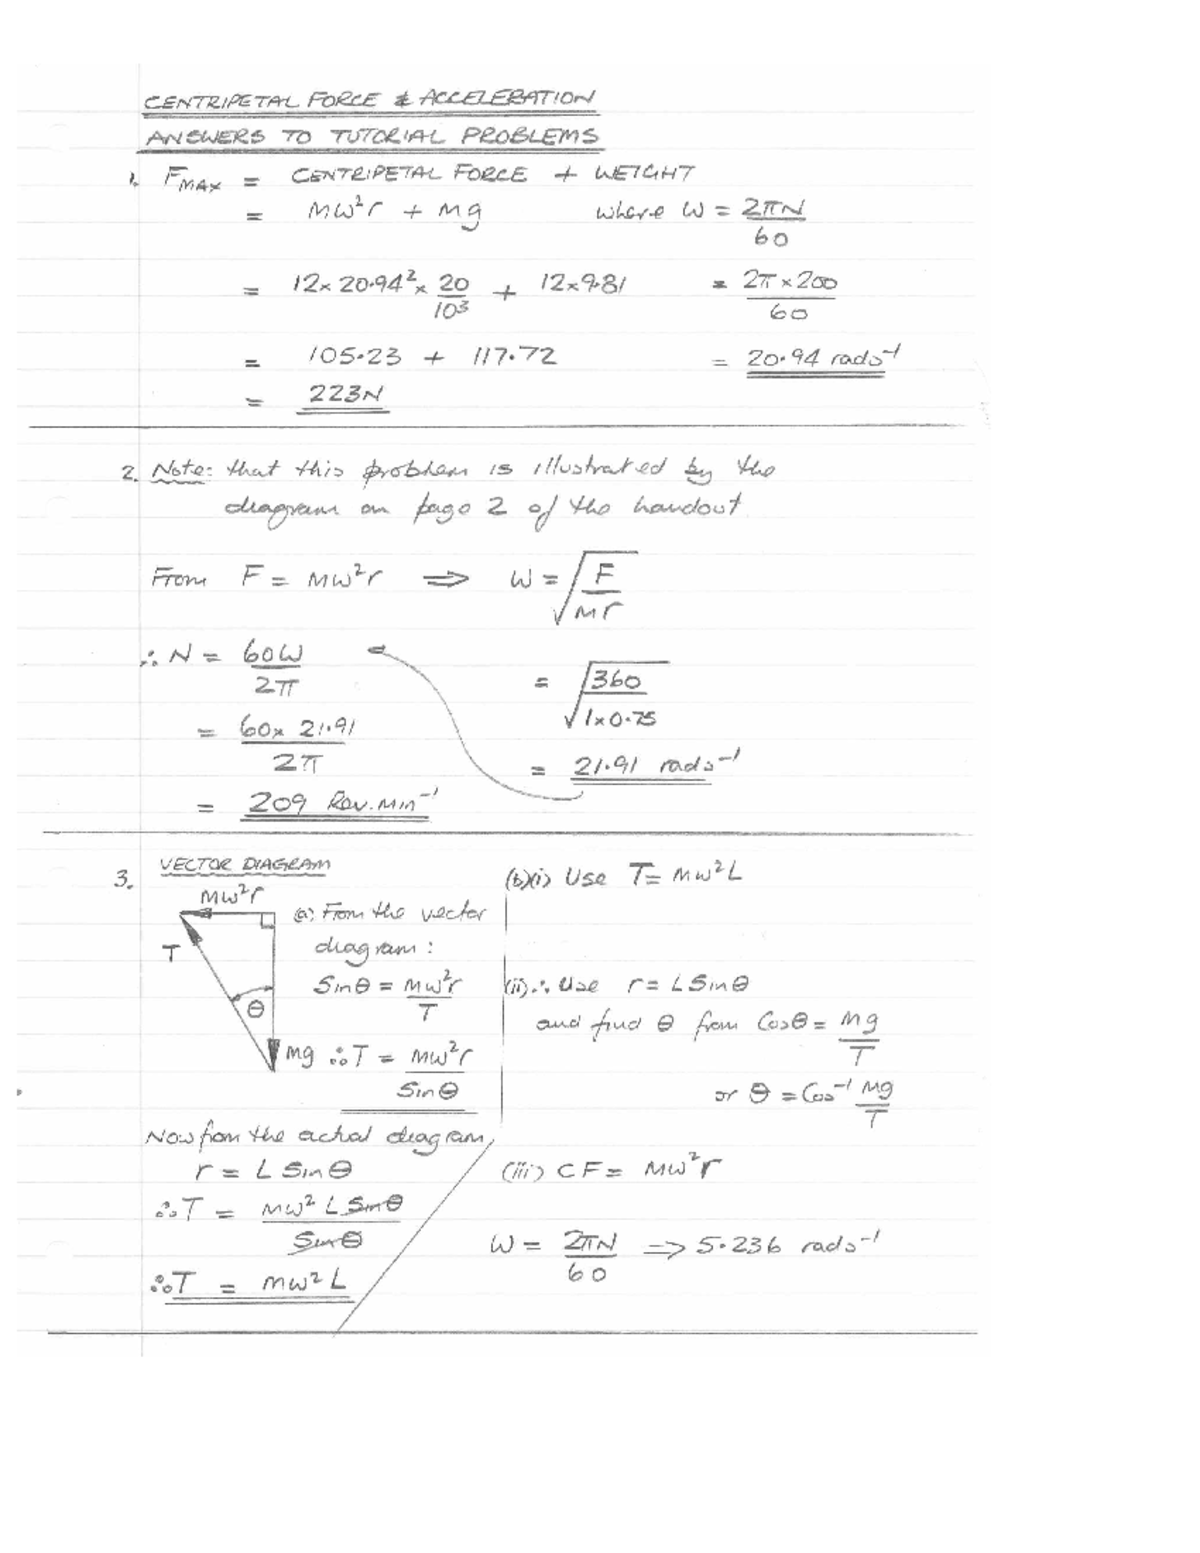 CENTRIPETAL FORCE & ACCELERATION
ANSWERS TO TUTORIAL PROBLEMS
1. F_MAX = CENTRIPETAL FORCE + WEIGHT
= Mω²r + Mg where ω = 2πN/60
= 12 × 20.94² × 20/10³ + 12×9.81 = 2π×200/60
= 105.23 + 117.72 = 20.94 rads⁻¹
= 223N
2. Note: that this problem is illustrated by the
diagram on page 2 of the handout
From F = Mω²r ⇒ ω = √(F/Mr)
∴ N = 60ω/2π = √(360/1×0.75)
= 60× 21.91/2π = 21.91 rads⁻¹
= 209 Rev.Min⁻¹
3. VECTOR DIAGRAM
Mω²r
T
θ
Mg
(a) From the vector
diagram:
Sinθ = Mω²r/T
∴ T = Mω²r/Sinθ
Now from the actual diagram,
r = L Sinθ
∴ T = Mω² L Sinθ/Sinθ
∴ T = Mω² L
(b)(i) Use T = Mω²L
(ii) ∴ Use r = L Sinθ
and find θ from Cosθ = Mg/T
or θ = Cos⁻¹ Mg/T
(iii) CF = Mω²r
ω = 2πN/60 ⇒ 5.236 rads⁻¹